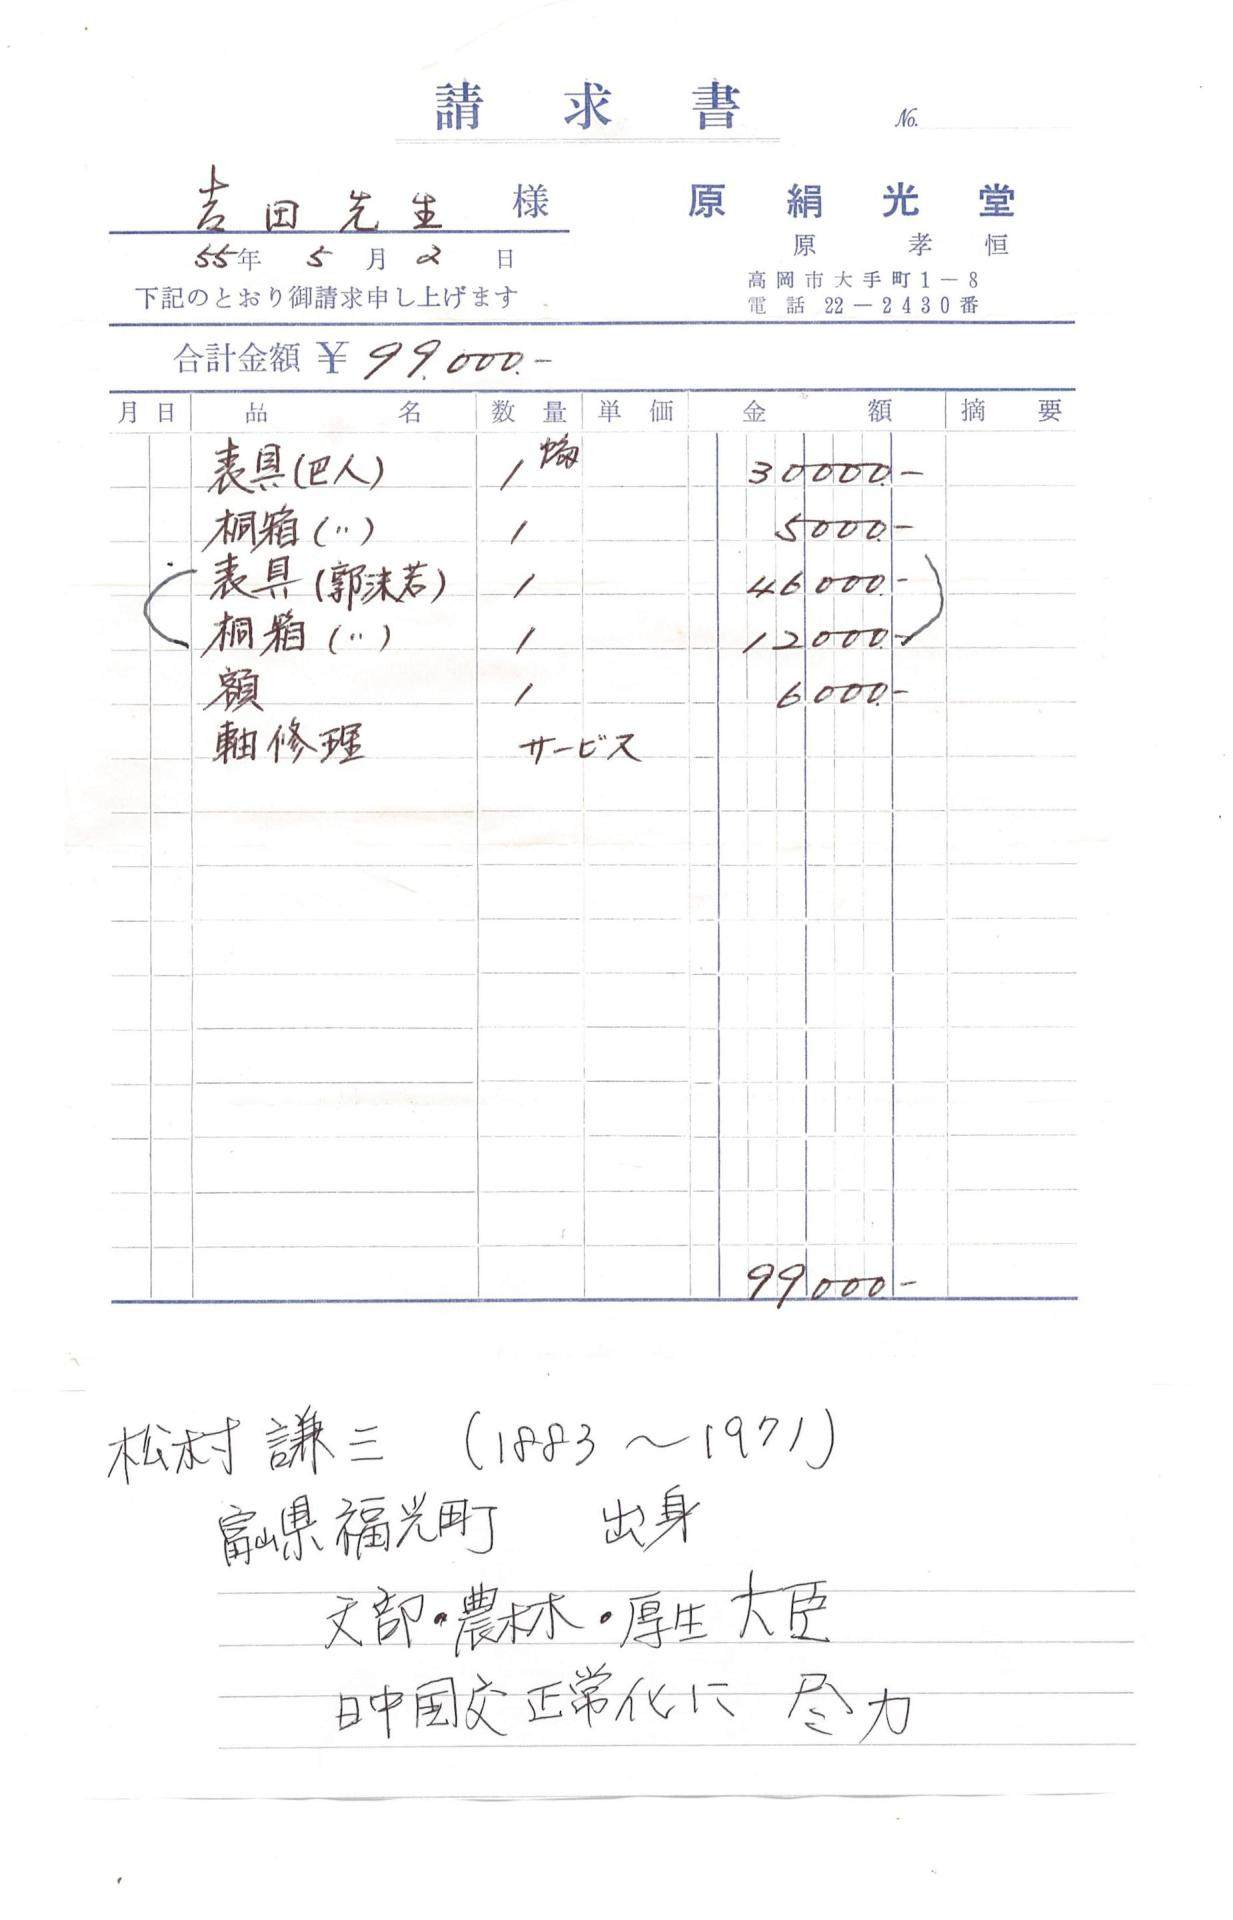 請求書
No.
吉田先生 様
原絹光堂
原 孝恒
55年 5月 2日
高岡市大手町1-8
下記のとおり御請求申し上げます
電話 22-2430番
合計金額 ¥ 99.000.-
月 日 品名 数量 単価 金額 摘要
表具(巴人) 1幅 30000.-
桐箱(〃) 1 5000.-
(表具(郭沫若) 1 46000.-)
(桐箱(〃) 1 12000.-)
額 1 6000.-
軸修理 サービス
99000-
松村謙三 (1883〜1971)
富山県福光町 出身
文部・農林・厚生大臣
日中国交正常化に 尽力